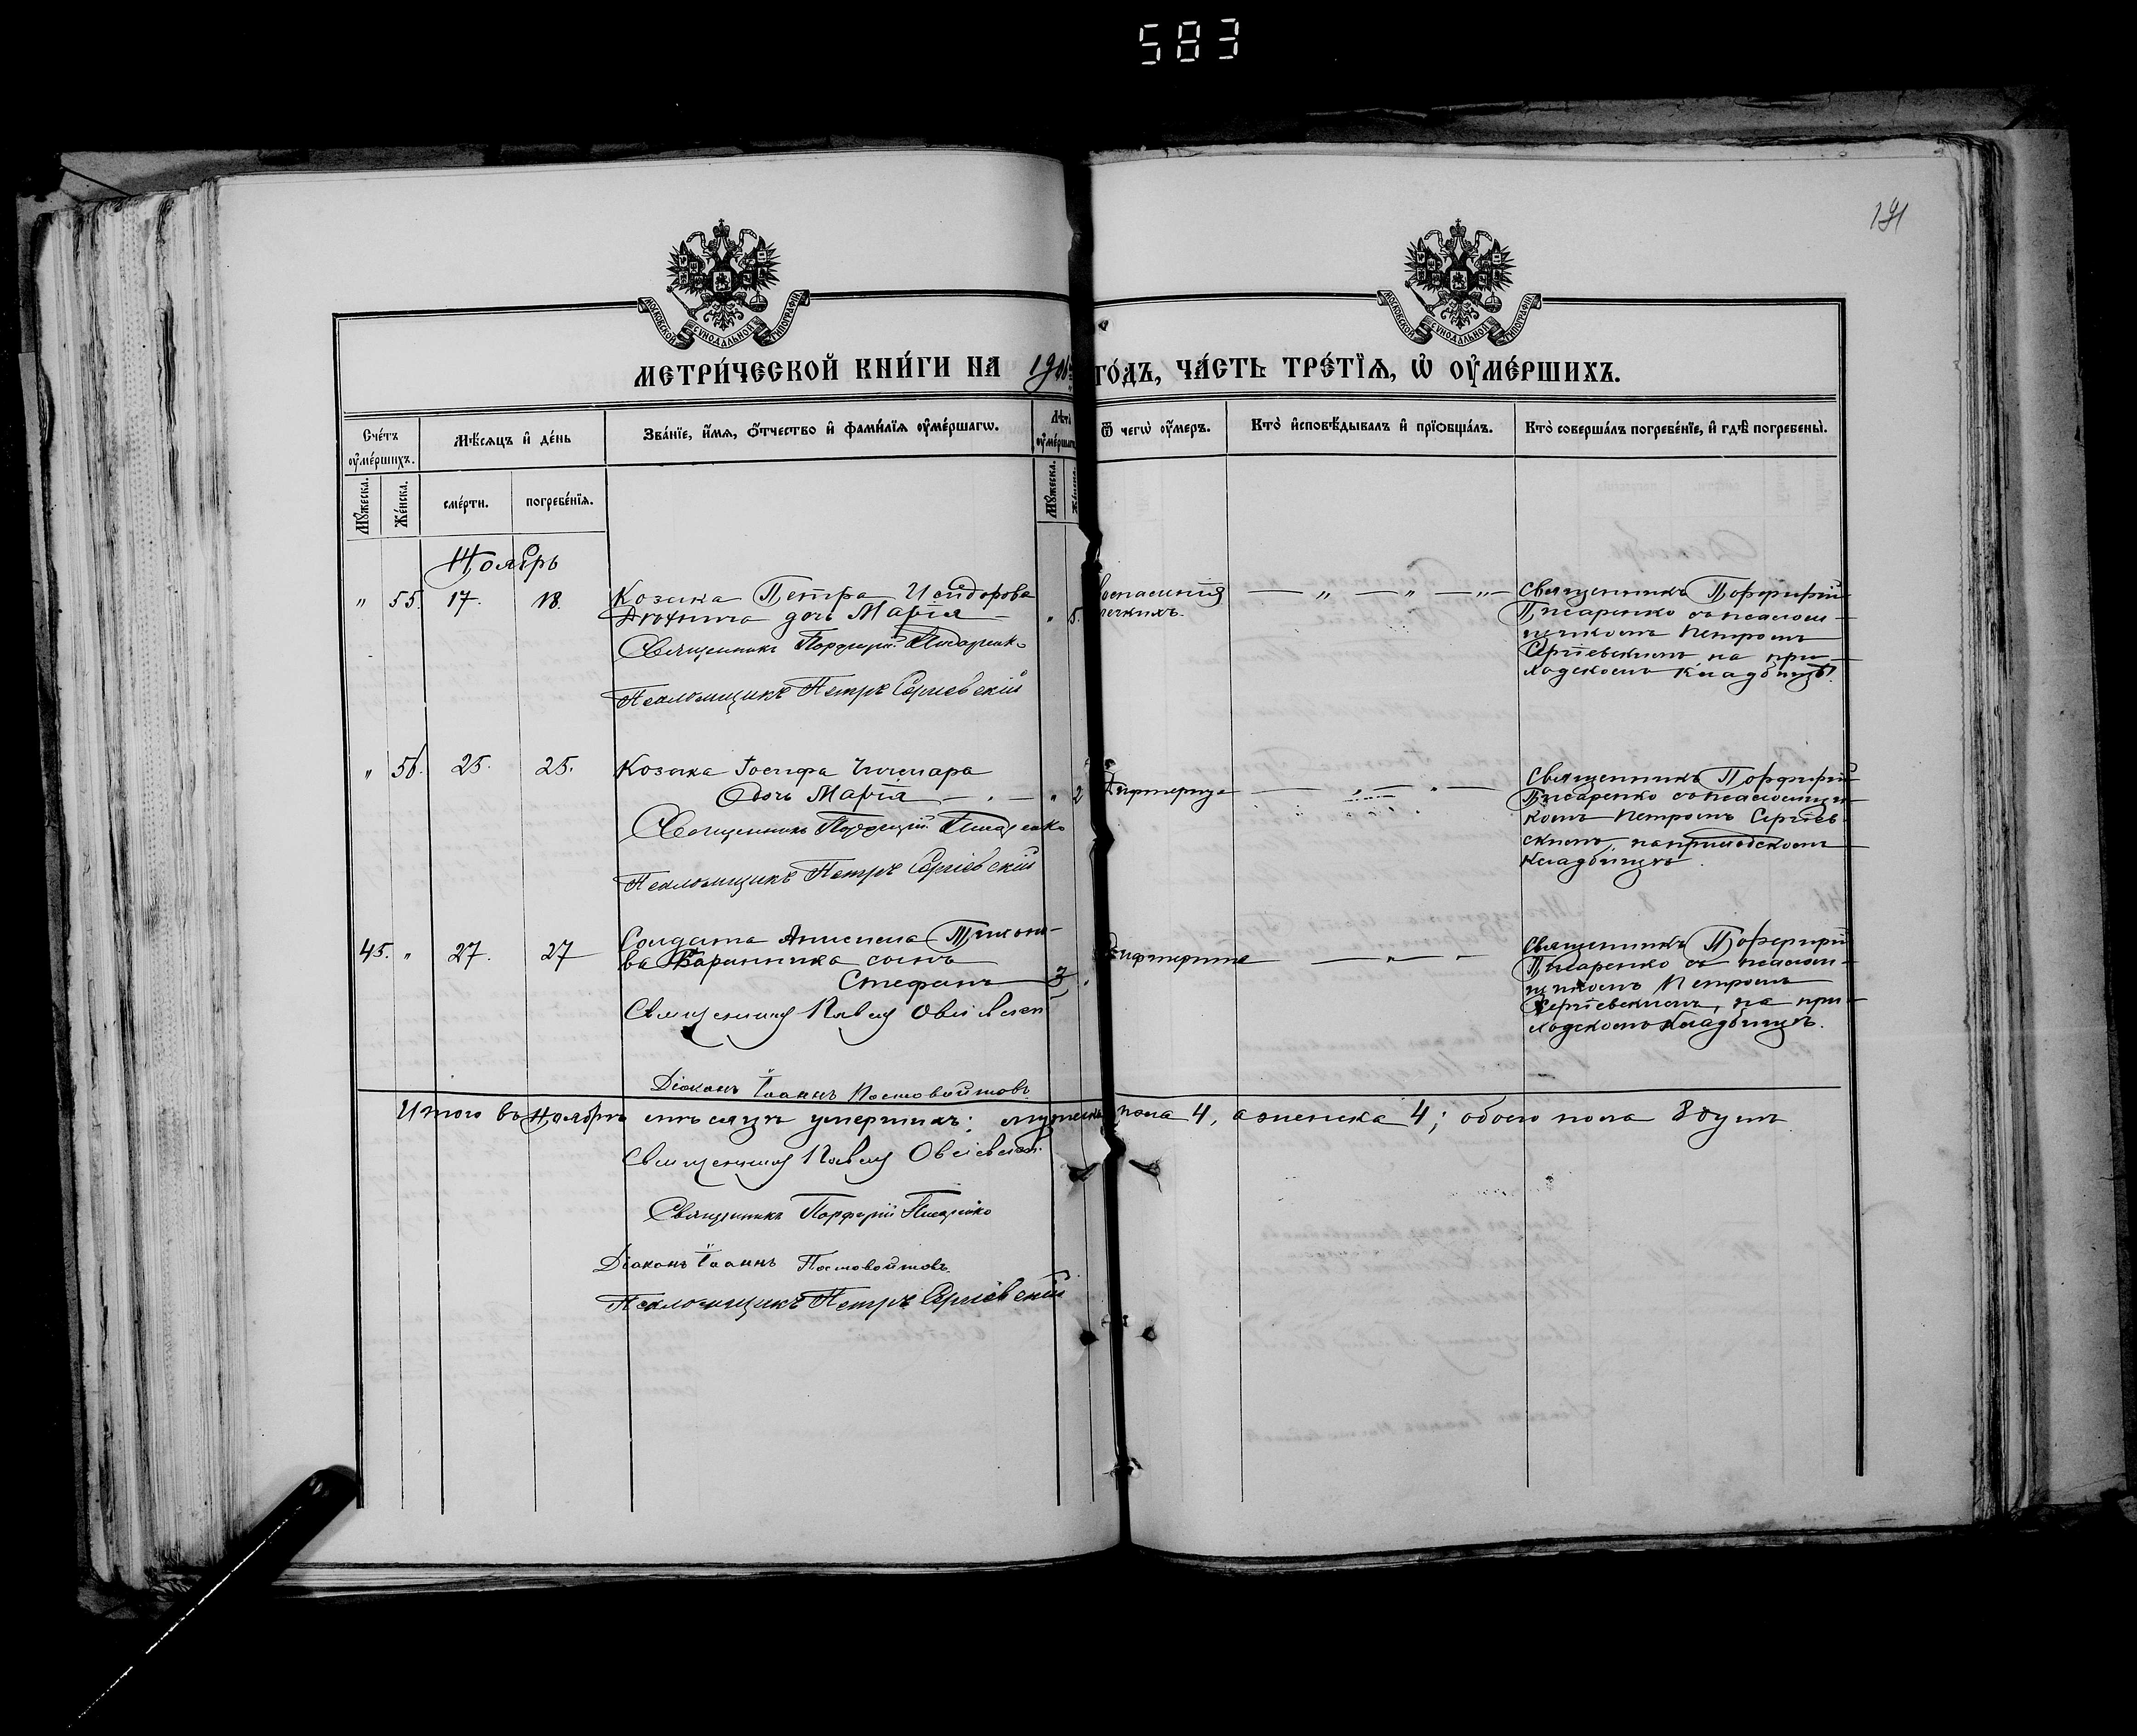 583
191
МОСКОВСКОЙ СѴНОДАЛЬНОЙ ТИПОГРАФІИ
МОСКОВСКОЙ СѴНОДАЛЬНОЙ ТИПОГРАФІИ
МЕТРИ́ЧЕСКОЙ КНИ́ГИ НА ГО́ДЪ, ЧА́СТЬ ТРЕ́ТЇѦ, Ѡ҆ ОУ҆МЕ́РШИХЪ.
Сче́тъ оу҆ме́ршихъ.
Мꙋ́жеска.
Же́нска.
Мѣ́сѧцъ и҆ де́нь
сме́рти.
погребе́нїѧ.
Зва́нїе, и҆́мѧ, ѻ҆́тчество и҆ фами́лїѧ оу҆ме́ршагѡ.
Лѣ́та оу҆ме́ршагѡ
Мꙋ́жеска.
Ѿ чегѡ̀ оу҆́меръ.
Кто̀ и҆сповѣ́дывалъ и҆ прїѡбща́лъ.
Кто̀ соверша́лъ погребе́нїе, и҆ гдѣ̀ погребены̀.
Ноябрь
" 55. 17. 18. Козака Петра Исидорова
дочь Марія " 5.
Священникъ Порфирій Писаренко
Псаломщикъ Петръ Сергіевскій
воспаленія
легкихъ.
— " — " — " —
Священникъ Порфирій
Писаренко съ псалом-
щикомъ Петромъ
Сергіевскимъ, на при-
ходскомъ кладбищѣ.
" 56. 25. 25. Козака Іосифа
дочь Марія " 2
Священникъ Порфирій Писаренко
Псаломщикъ Петръ Сергіевскій
Дифтерита
Священникъ Порфирій
Писаренко съ псаломщи-
комъ Петромъ Сергіев-
скимъ, на приходскомъ
кладбищѣ.
45. " 27. 27 Солдата Тихоно-
ва Вареника сынъ
Стефанъ 3 "
Священникъ Павелъ
Діаконъ Іоаннъ Постовойтовъ
Дифтерита
Священникъ Порфирій
Писаренко съ псалом-
щикомъ Петромъ
Сергіевскимъ, на при-
ходскомъ кладбищѣ.
Итого въ Ноябрѣ мѣсяцѣ умершихъ: мужеска пола 4, а женска 4; обоего пола 8 душъ
Священникъ Павелъ
Священникъ Порфирій Писаренко
Діаконъ Іоаннъ Постовойтовъ.
Псаломщикъ Петръ Сергіевскій